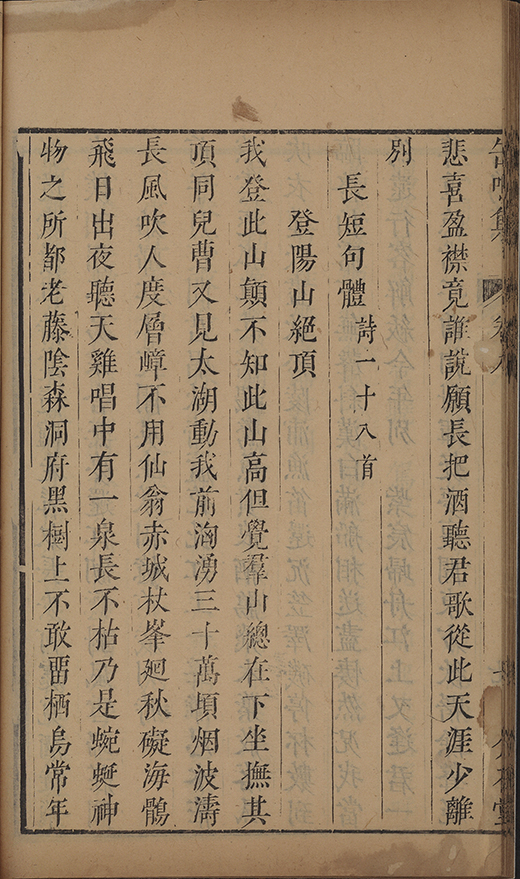 缶鳴集
悲喜盈襟竟誰說願長把酒聽君歌從此天涯少離
別
長短句體 詩一十八首
登陽山絕頂
我登此山顛不知此山高但覺羣山總在下坐撫其
頂同兒曹又見太湖動我前洶湧三十萬頃烟波濤
長風吹人度層嶂不用仙翁赤城杖峯廻秋礙海鶻
飛日出夜聽天雞唱中有一泉長不枯乃是蜿蜒神
物之所都老藤陰森洞府黑樹上不敢畱栖鳥常年